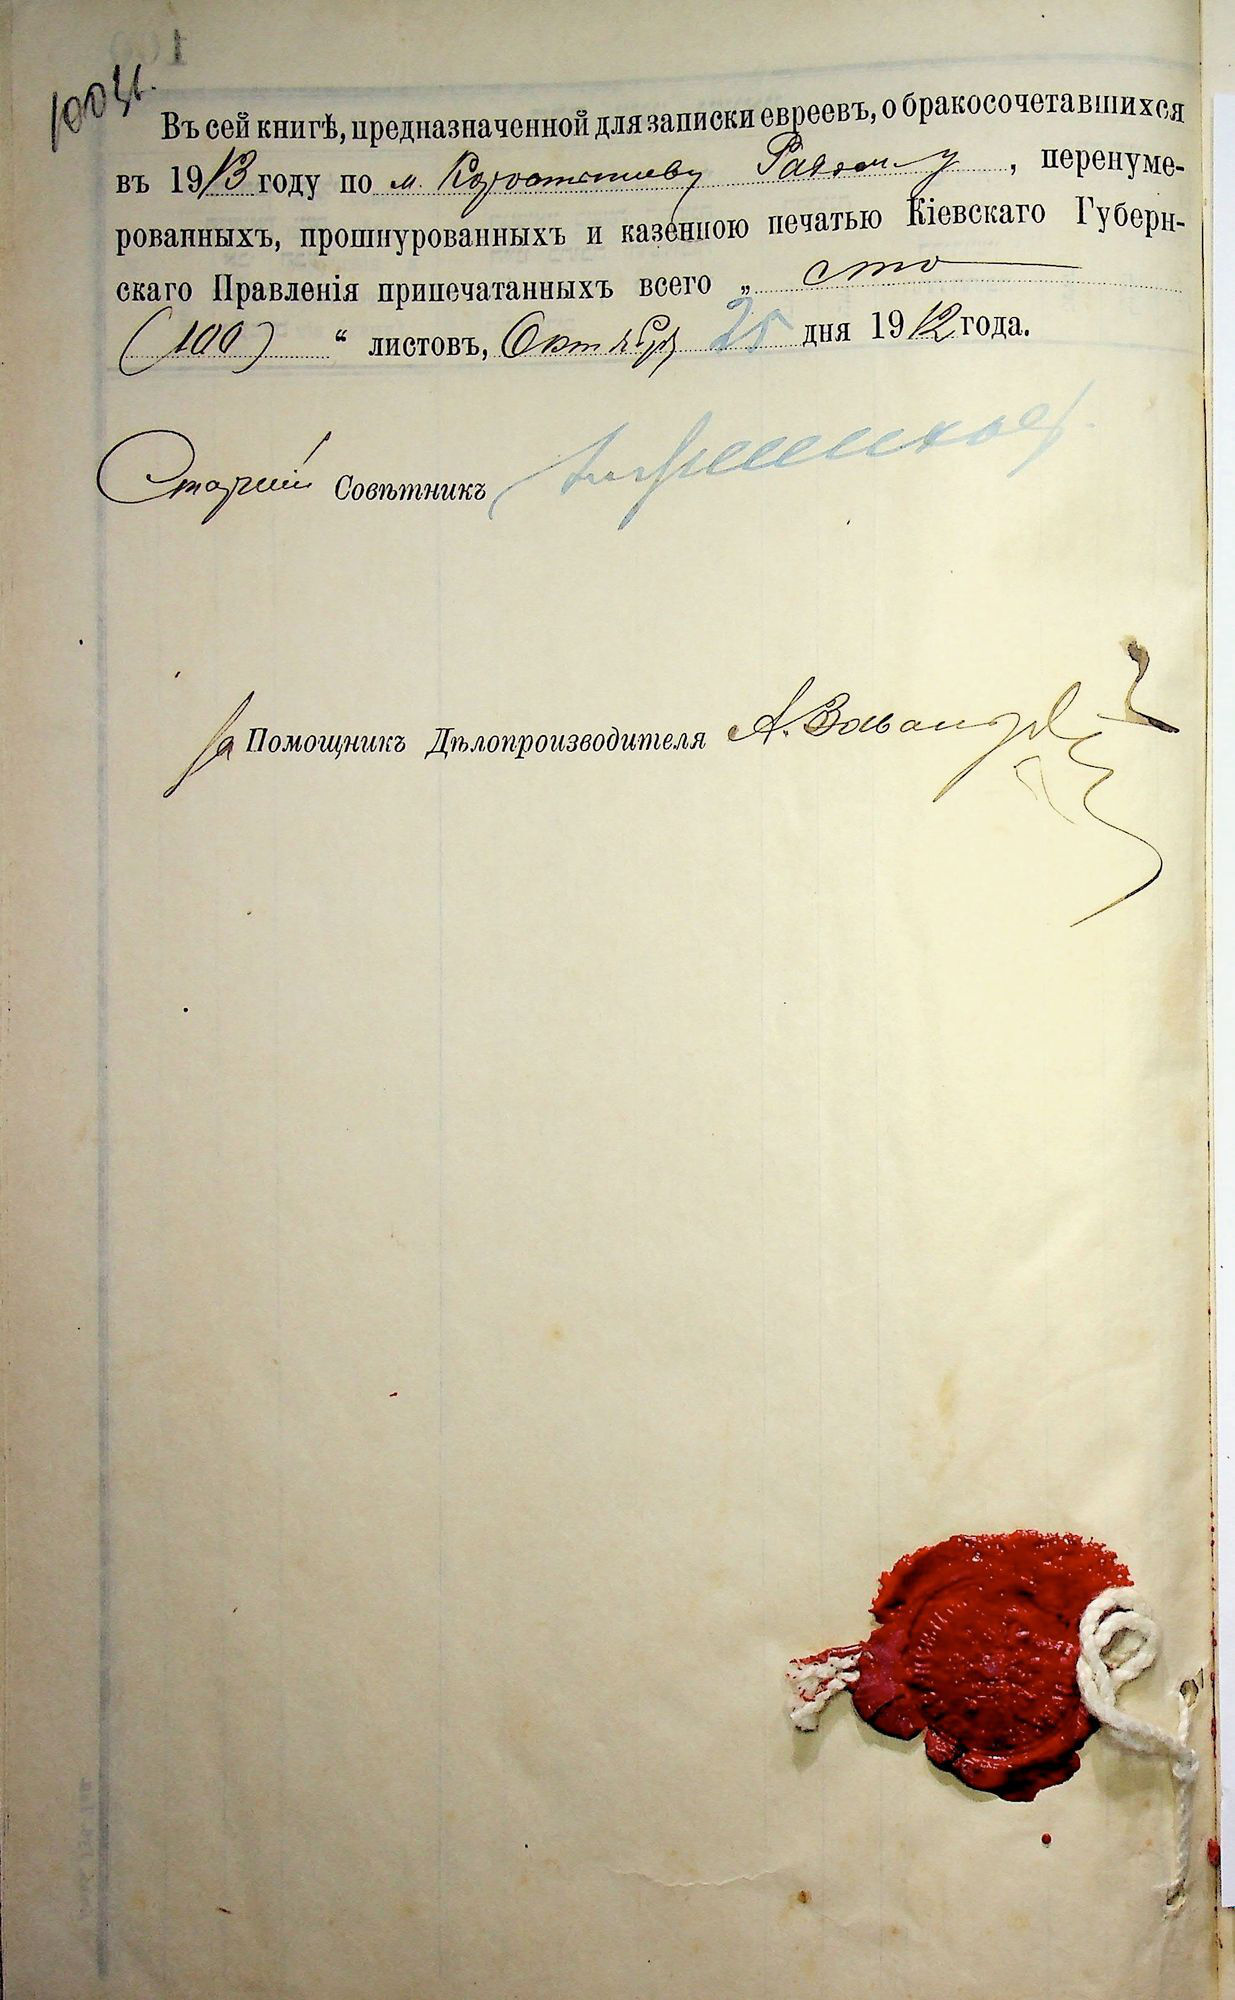 Въ сей книгѣ, предназначенной для записки евреевъ, о бракосочетавшихся
въ 1913 году по м. Коростышеву Радом-у, перенуме-
рованныхъ, прошнурованныхъ и казенною печатью Кіевскаго Губерн-
скаго Правленія припечатанныхъ всего „ сто
(100) “ листовъ, Октября 25 дня 1912 года.
Старшій Совѣтникъ
За Помощникъ Дѣлопроизводителя А.